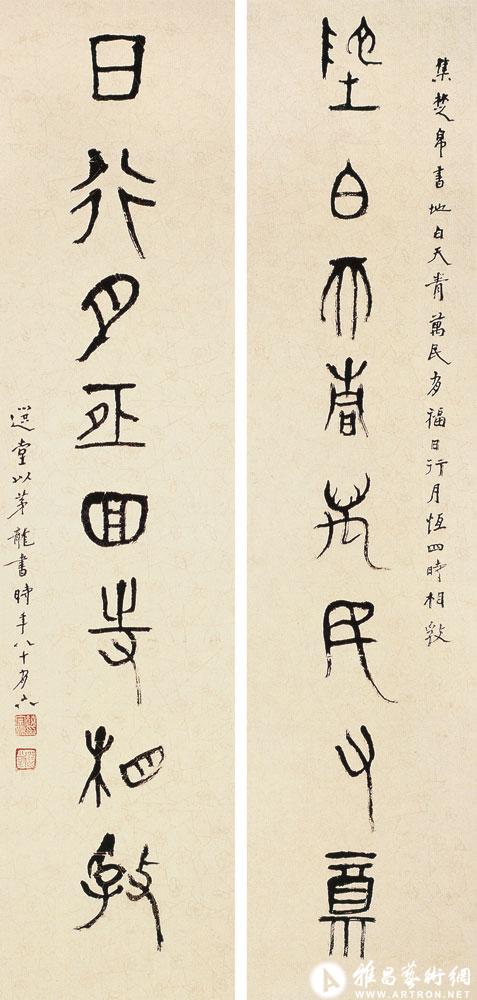 集楚帛書地白天青萬民有福日行月恆四時相
地白天青萬民有福
日行月恆四時相
選堂以茅龍書時年八十有六
雅昌藝術網
WWW.ARTRON.NET